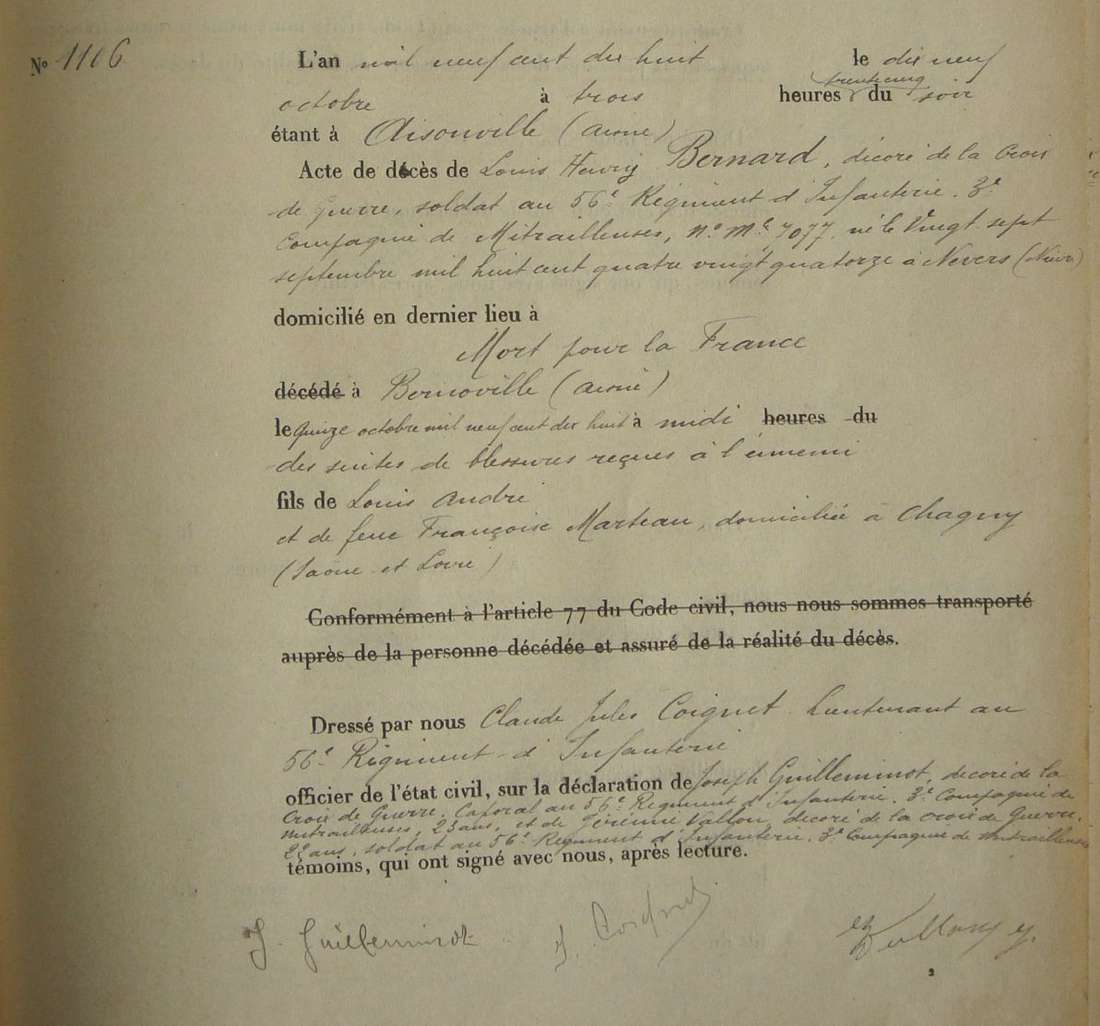 N° 1106
L'an mil neuf cent dix huit le dix neuf
octobre à trois heures trente cinq du soir
étant à Aisonville (Aisne)
Acte de décès de Louis Henry Bernard, décoré de la Croix
de Guerre, soldat au 56e Régiment d'Infanterie. 3e
Compagnie de Mitrailleuses, no Mle 7077 né le Vingt sept
septembre mil huit cent quatre vingt quatorze à Nevers (Nièvre)
domicilié en dernier lieu à
Mort pour la France
décédé à Bernoville (Aisne)
le quinze octobre mil neuf cent dix huit à midi heures du
des suites de blessures reçues à l'ennemi
fils de Louis André
et de feue Françoise Marteau, domiciliée à Chagny
(Saône et Loire)
Conformément à l'article 77 du Code civil, nous nous sommes transporté
auprès de la personne décédée et assuré de la réalité du décès.
Dressé par nous Claude Jules Coignet Lieutenant au
56e Régiment d'Infanterie
officier de l'état civil, sur la déclaration de Joseph Guilleminot, décoré de la
Croix de Guerre, Caporal au 56e Régiment d'Infanterie. 3e Compagnie de
mitrailleuses, 23 ans, et de Jérémie Vallon, décoré de la croix de Guerre,
22 ans, soldat au 56e Régiment d'Infanterie. 3e Compagnie de Mitrailleuses
témoins, qui ont signé avec nous, après lecture.
J. Guilleminot J. Coignet
2